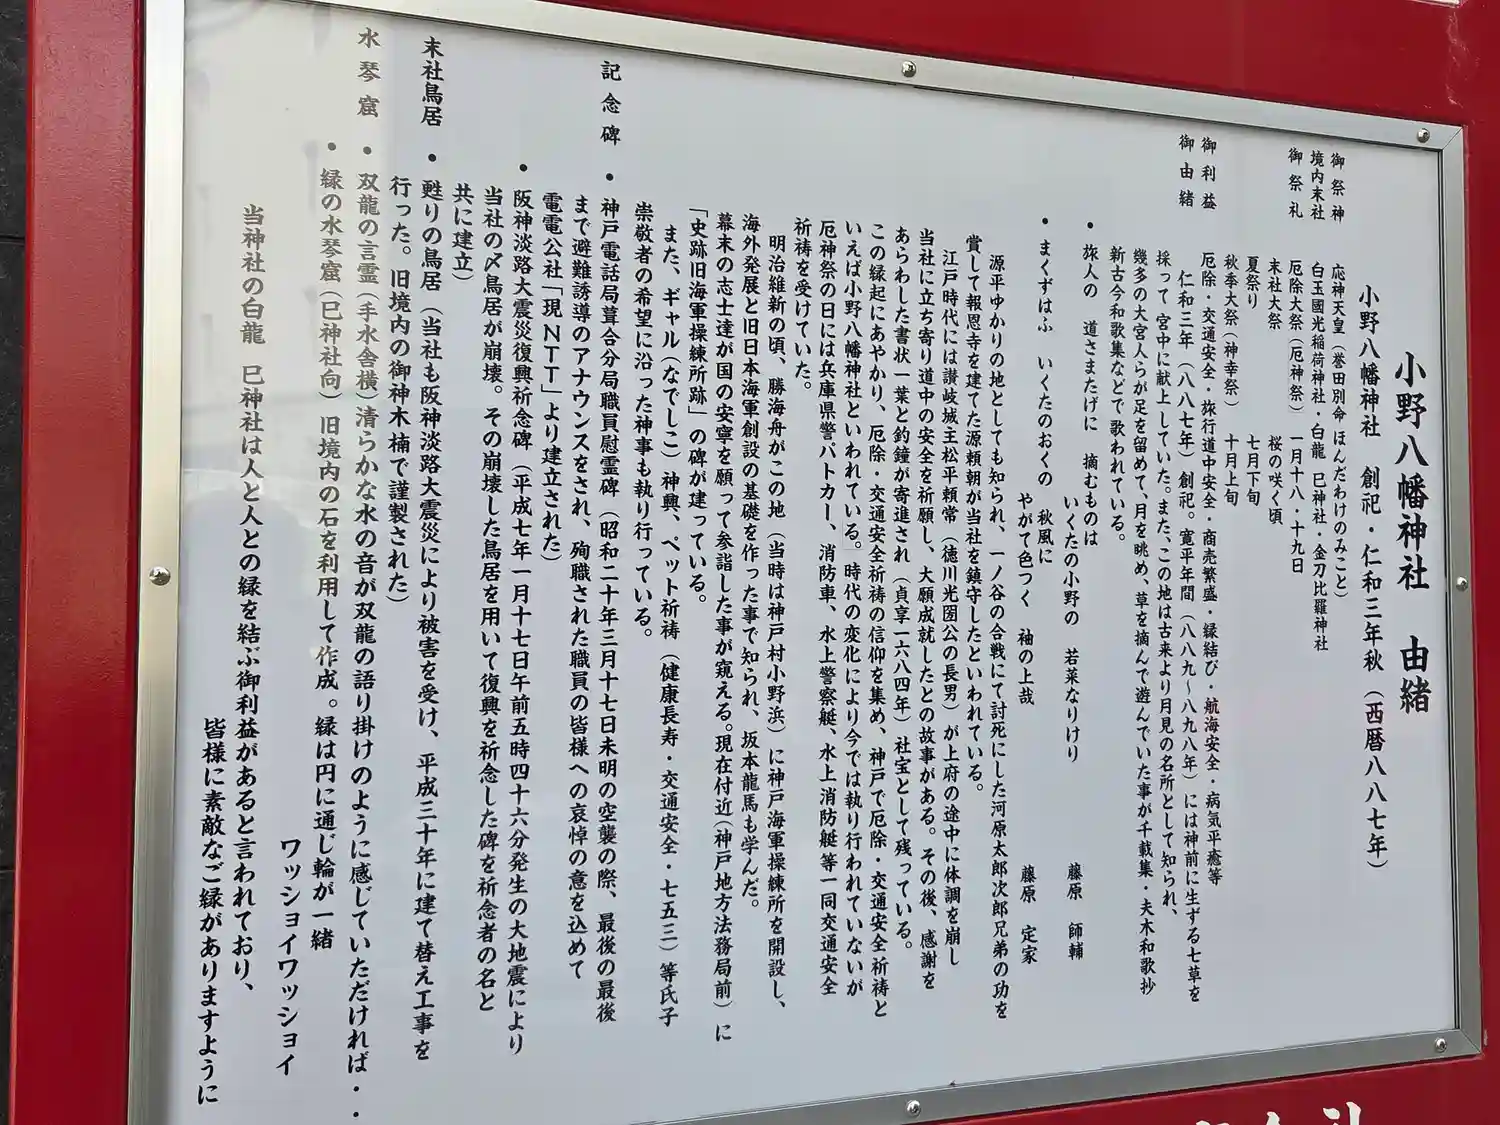 小野八幡神社　由緒
小野八幡神社　創祀・仁和三年秋（西暦八八七年）
御祭神　応神天皇（誉田別命 ほんだわけのみこと）
境内末社　白玉國光稲荷神社・白龍 巳神社・金刀比羅神社
御祭礼　厄除大祭（厄神祭）　一月十八・十九日
末社大祭　桜の咲く頃
夏祭り　七月下旬
秋季大祭（神幸祭）　十月上旬
御利益　厄除・交通安全・旅行道中安全・商売繁盛・縁結び・航海安全・病気平癒等
御由緒　仁和三年（八八七年）創祀。寛平年間（八八九～八九八年）には神前に生ずる七草を
採って宮中に献上していた。また、この地は古来より月見の名所として知られ、
幾多の大宮人らが足を留めて、月を眺め、草を摘んで遊んでいた事が千載集・夫木和歌抄
新古今和歌集などで歌われている。
・旅人の　道さまたげに　摘むものは
いくたの小野の　若菜なりけり　藤原　師輔
・まくずはふ　いくたのおくの　秋風に
やがて色つく　袖の上哉　藤原　定家
源平ゆかりの地としても知られ、一ノ谷の合戦にて討死にした河原太郎次郎兄弟の功を
賞して報恩寺を建てた源頼朝が当社を鎮守したといわれている。
江戸時代には讃岐城主松平頼常（徳川光圀公の長男）が上府の途中に体調を崩し
当社に立ち寄り道中の安全を祈願し、大願成就したとの故事がある。その後、感謝を
あらわした書状一葉と釣鐘が寄進され（貞享一六八四年）社宝として残っている。
この縁起にあやかり、厄除・交通安全祈祷の信仰を集め、神戸で厄除・交通安全祈祷と
いえば小野八幡神社といわれている。時代の変化により今では執り行われていないが
厄神祭の日には兵庫県警パトカー、消防車、水上警察艇、水上消防艇等一同交通安全
祈祷を受けていた。
明治維新の頃、勝海舟がこの地（当時は神戸村小野浜）に神戸海軍操練所を開設し、
海外発展と旧日本海軍創設の基礎を作った事で知られ、坂本龍馬も学んだ。
幕末の志士達が国の安寧を願って参詣した事が窺える。現在付近（神戸地方法務局前）に
「史跡旧海軍操練所跡」の碑が建っている。
また、ギャル（なでしこ）神輿、ペット祈祷（健康長寿・交通安全・七五三）等氏子
崇敬者の希望に沿った神事も執り行っている。
記念碑　・神戸電話局葺合分局職員慰霊碑（昭和二十年三月十七日未明の空襲の際、最後の最後
まで避難誘導のアナウンスをされ、殉職された職員の皆様への哀悼の意を込めて
電電公社「現ＮＴＴ」より建立された）
・阪神淡路大震災復興祈念碑（平成七年一月十七日午前五時四十六分発生の大地震により
当社の〆鳥居が崩壊。その崩壊した鳥居を用いて復興を祈念した碑を祈念者の名と
共に建立）
末社鳥居　・甦りの鳥居（当社も阪神淡路大震災により被害を受け、平成三十年に建て替え工事を
行った。旧境内の御神木楠で謹製された）
水琴窟　・双龍の言霊（手水舎横）清らかな水の音が双龍の語り掛けのように感じていただければ・・
・縁の水琴窟（巳神社向）旧境内の石を利用して作成。縁は円に通じ輪が一緒
ワッショイワッショイ
当神社の白龍　巳神社は人と人との縁を結ぶ御利益があると言われており、
皆様に素敵なご縁がありますように